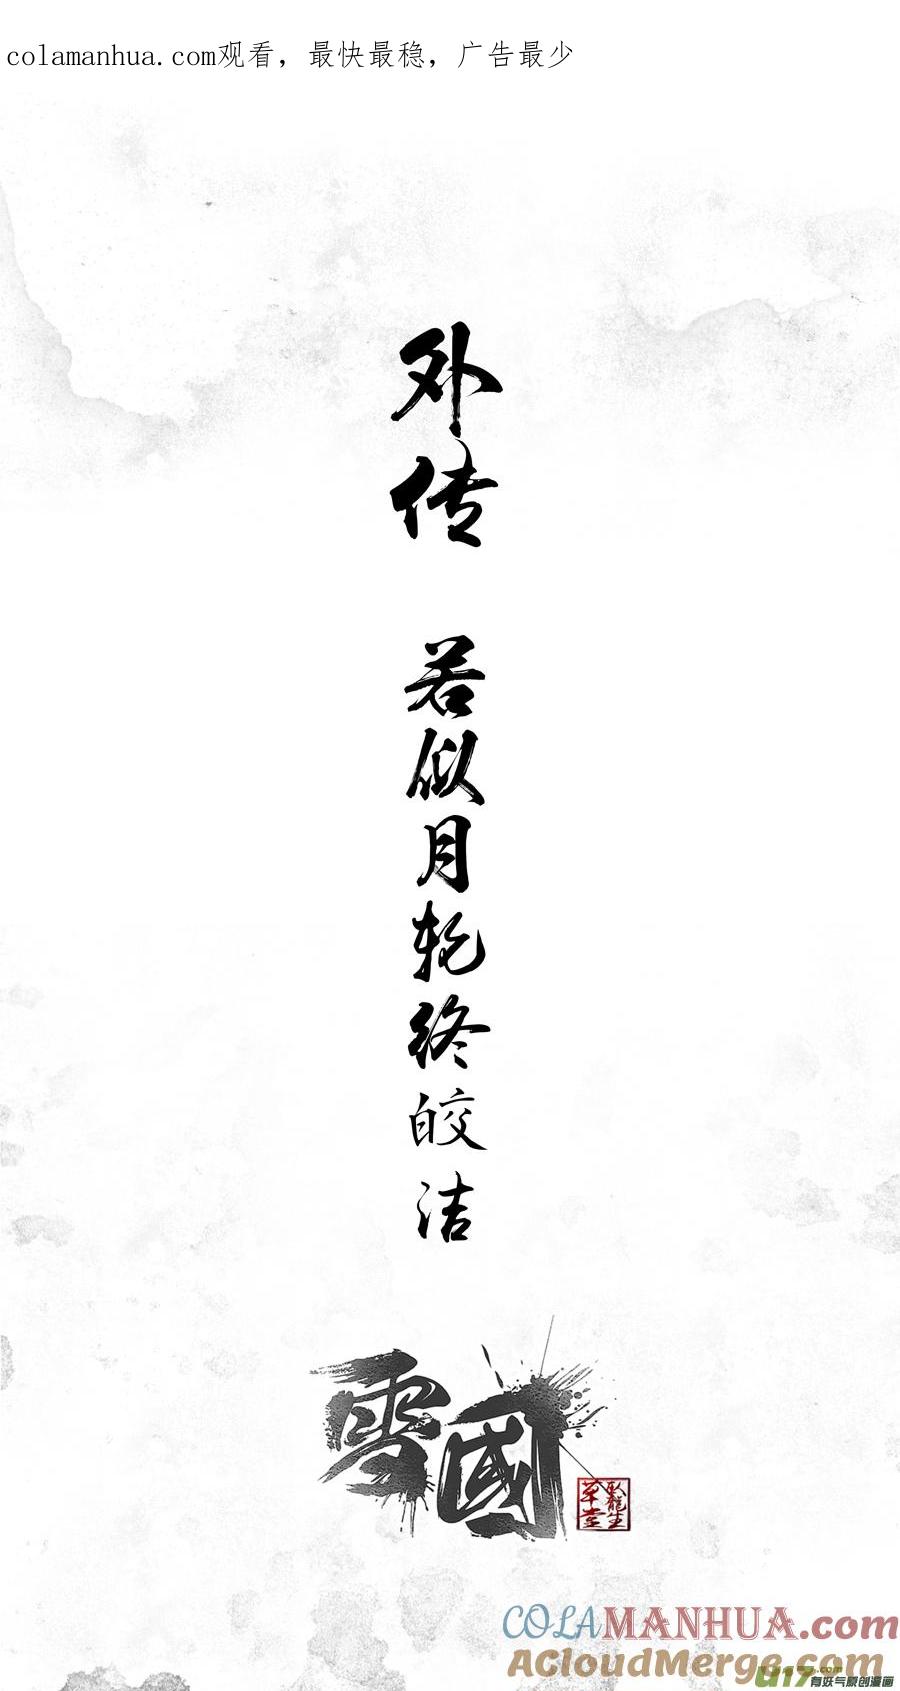 colamanhua.com观看，最快最稳，广告最少
外传
若似月轮终皎洁
雪國
臥龍生
草堂
COLAMANHUA.com
ACloudMerge.com
U17.com
有妖气原创漫画